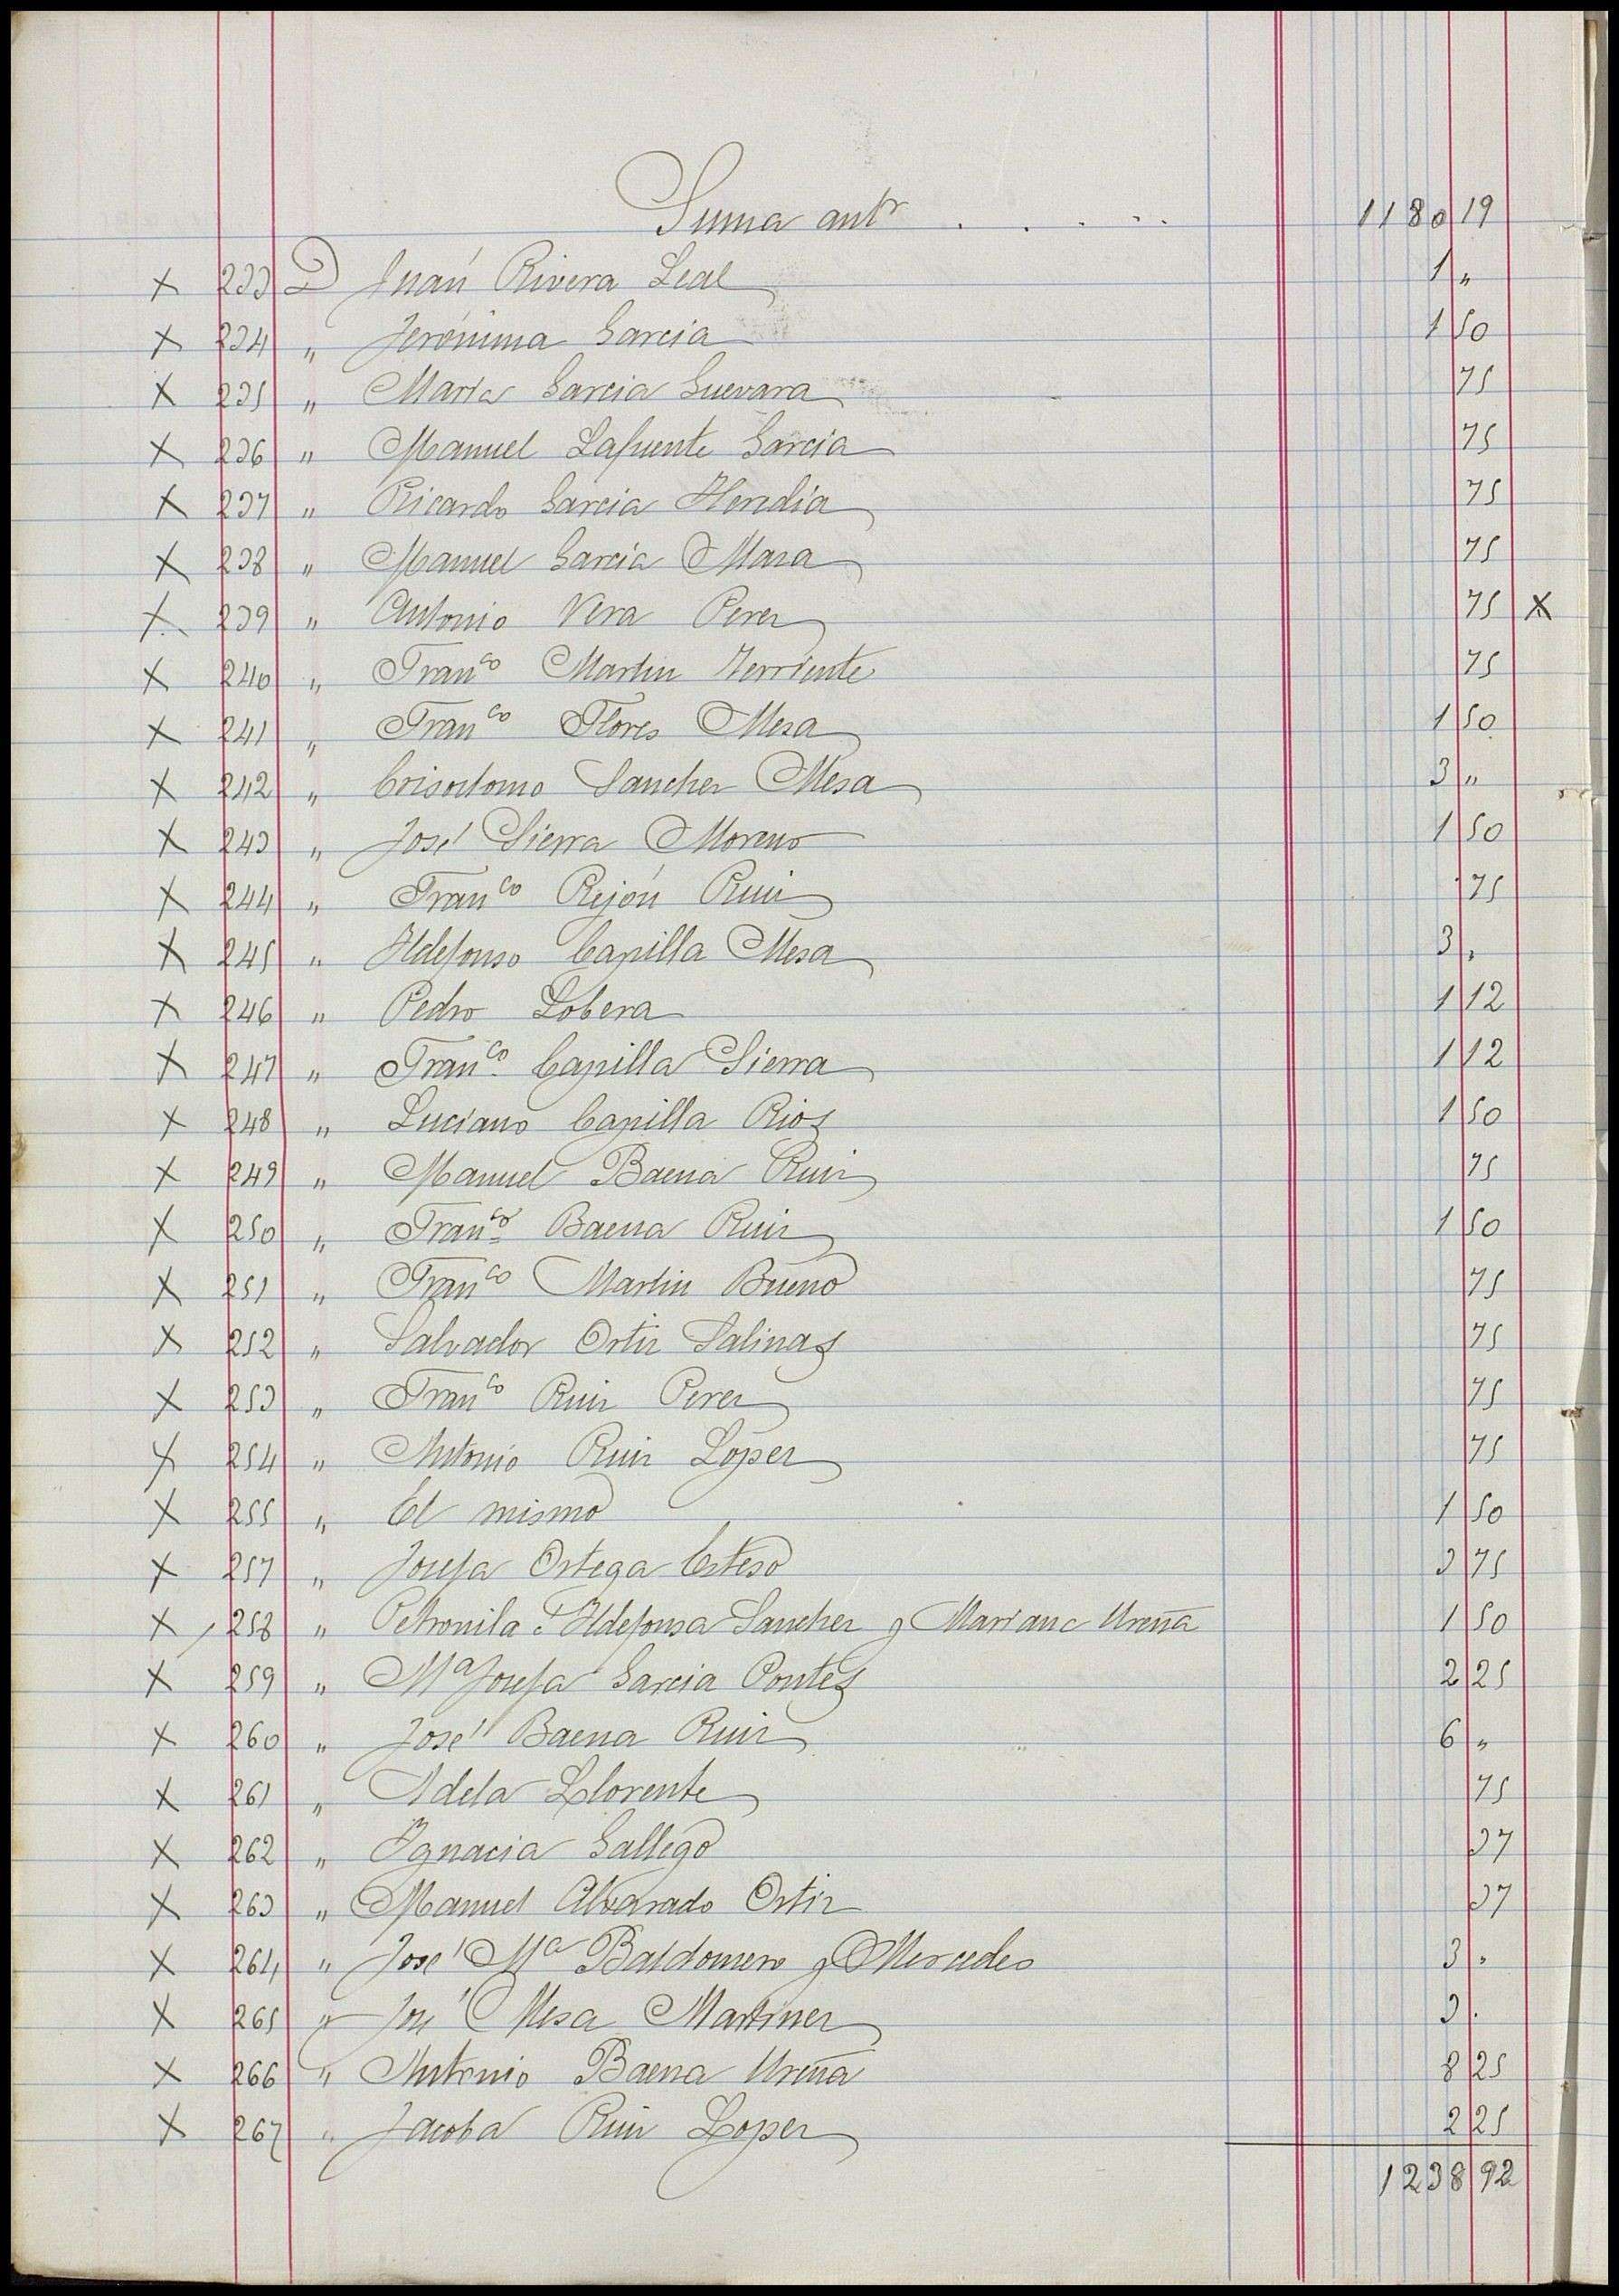 Suma ant.r . . . . . . 1180 19
x 233 D Juan Rivera Leal 1 "
x 234 " Jerónima Garcia 1 50
x 235 " Maria Garcia Guevara 75
x 236 " Manuel Lafuente Garcia 75
x 237 " Ricardo Garcia Heredia 75
x 238 " Manuel Garcia Maza 75
x 239 " Antonio Vera Perez 75 x
x 240 " Franco Martin Terriente 75
x 241 " Franco Flores Mesa 1 50
x 242 " Crisostomo Sanchez Mesa 3 "
x 243 " José Sierra Moreno 1 50
x 244 " Franco Rejón Ruiz 75
x 245 " Ildefonso Capilla Mesa 3 "
x 246 " Pedro Lobera 1 12
x 247 " Franco Capilla Sierra 1 12
x 248 " Luciano Capilla Rios 1 50
x 249 " Manuel Baena Ruiz 75
x 250 " Franco Baena Ruiz 1 50
x 251 " Franco Martin Bueno 75
x 252 " Salvador Ortiz Salinas 75
x 253 " Franco Ruiz Perez 75
x 254 " Antonio Ruiz López 75
x 255 " El mismo 1 50
x 257 " Josefa Ortega Esteso 3 75
x 258 " Petronila é Ildefonsa Sanchez y Mariano Ureña 1 50
x 259 " Ma Josefa Garcia Pontes 2 25
x 260 " José Baena Ruiz 6 "
x 261 " Adela Llorente 75
x 262 " Ignacia Gallego 37
x 263 " Manuel Alvarado Ortiz 37
x 264 " José Ma Baldomero y Mercedes 3 "
x 265 " José Mesa Martinez 3 .
x 266 " Antonio Baena Ureña 8 25
x 267 " Jacoba Ruiz Lopez 2 25
1238 92